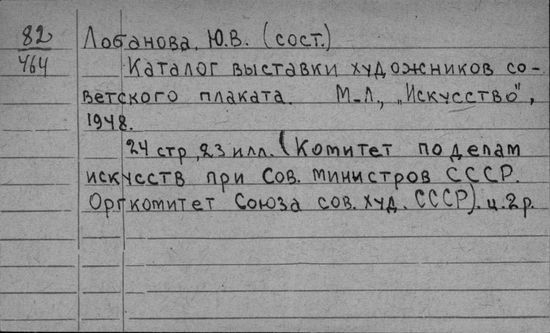 82
464
Лобанова, Ю.В. (сост.)
Каталог выставки художников со-
ветского плаката. М-Л., „Искусство",
1948.
24 стр, 23 илл. (Комитет по делам
искусств при Сов. министров СССР.
Оргкомитет Союза сов. худ. СССР). ц. 2 р.